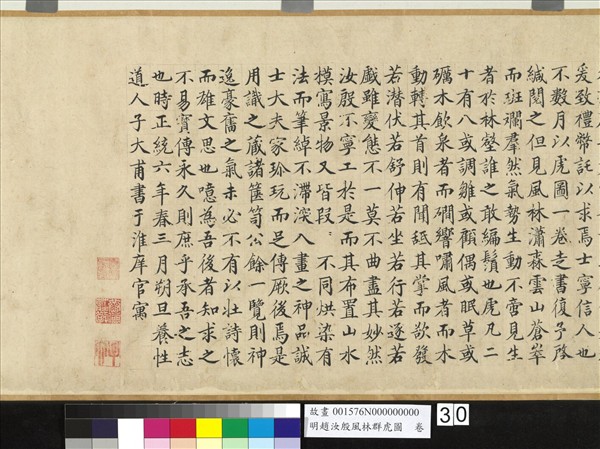 爰致禮幣託以求焉士寧信人也
不數月以虎圖一卷走書復予啓
緘閱之但見風林瀟森雲山蒼翠
而班斕羣然氣勢生動不啻見生
者於林壑誰之敢編鬚也虎凡二
十有八或調雛或顧偶或眠草或
礪木飲泉者而磵響嘯風者而木
動轉其首則有聞舐其掌而欲發
若潜伏若舒伸若坐若行若逐若
戲雖變態不一莫不曲盡其妙然
汝殷不寧工於是而其布置山水
摸寫景物又皆段〻不同烘染有
法而筆綽不滯深入畫之神品誠
士大夫家珎玩而足傳厥後焉是
用識之藏諸篋笥公餘一覽則神
逸豪奮之氣未必不有以壯詩懷
而雄文思也噫為吾後者知求之
不易寳傳永久則庶乎承吾之志
也時正統六年春三月朔旦養性
道人子大甫書于淮庠官寓
故畫 001576N000000000
明趙汝殷風林群虎圖 卷
30